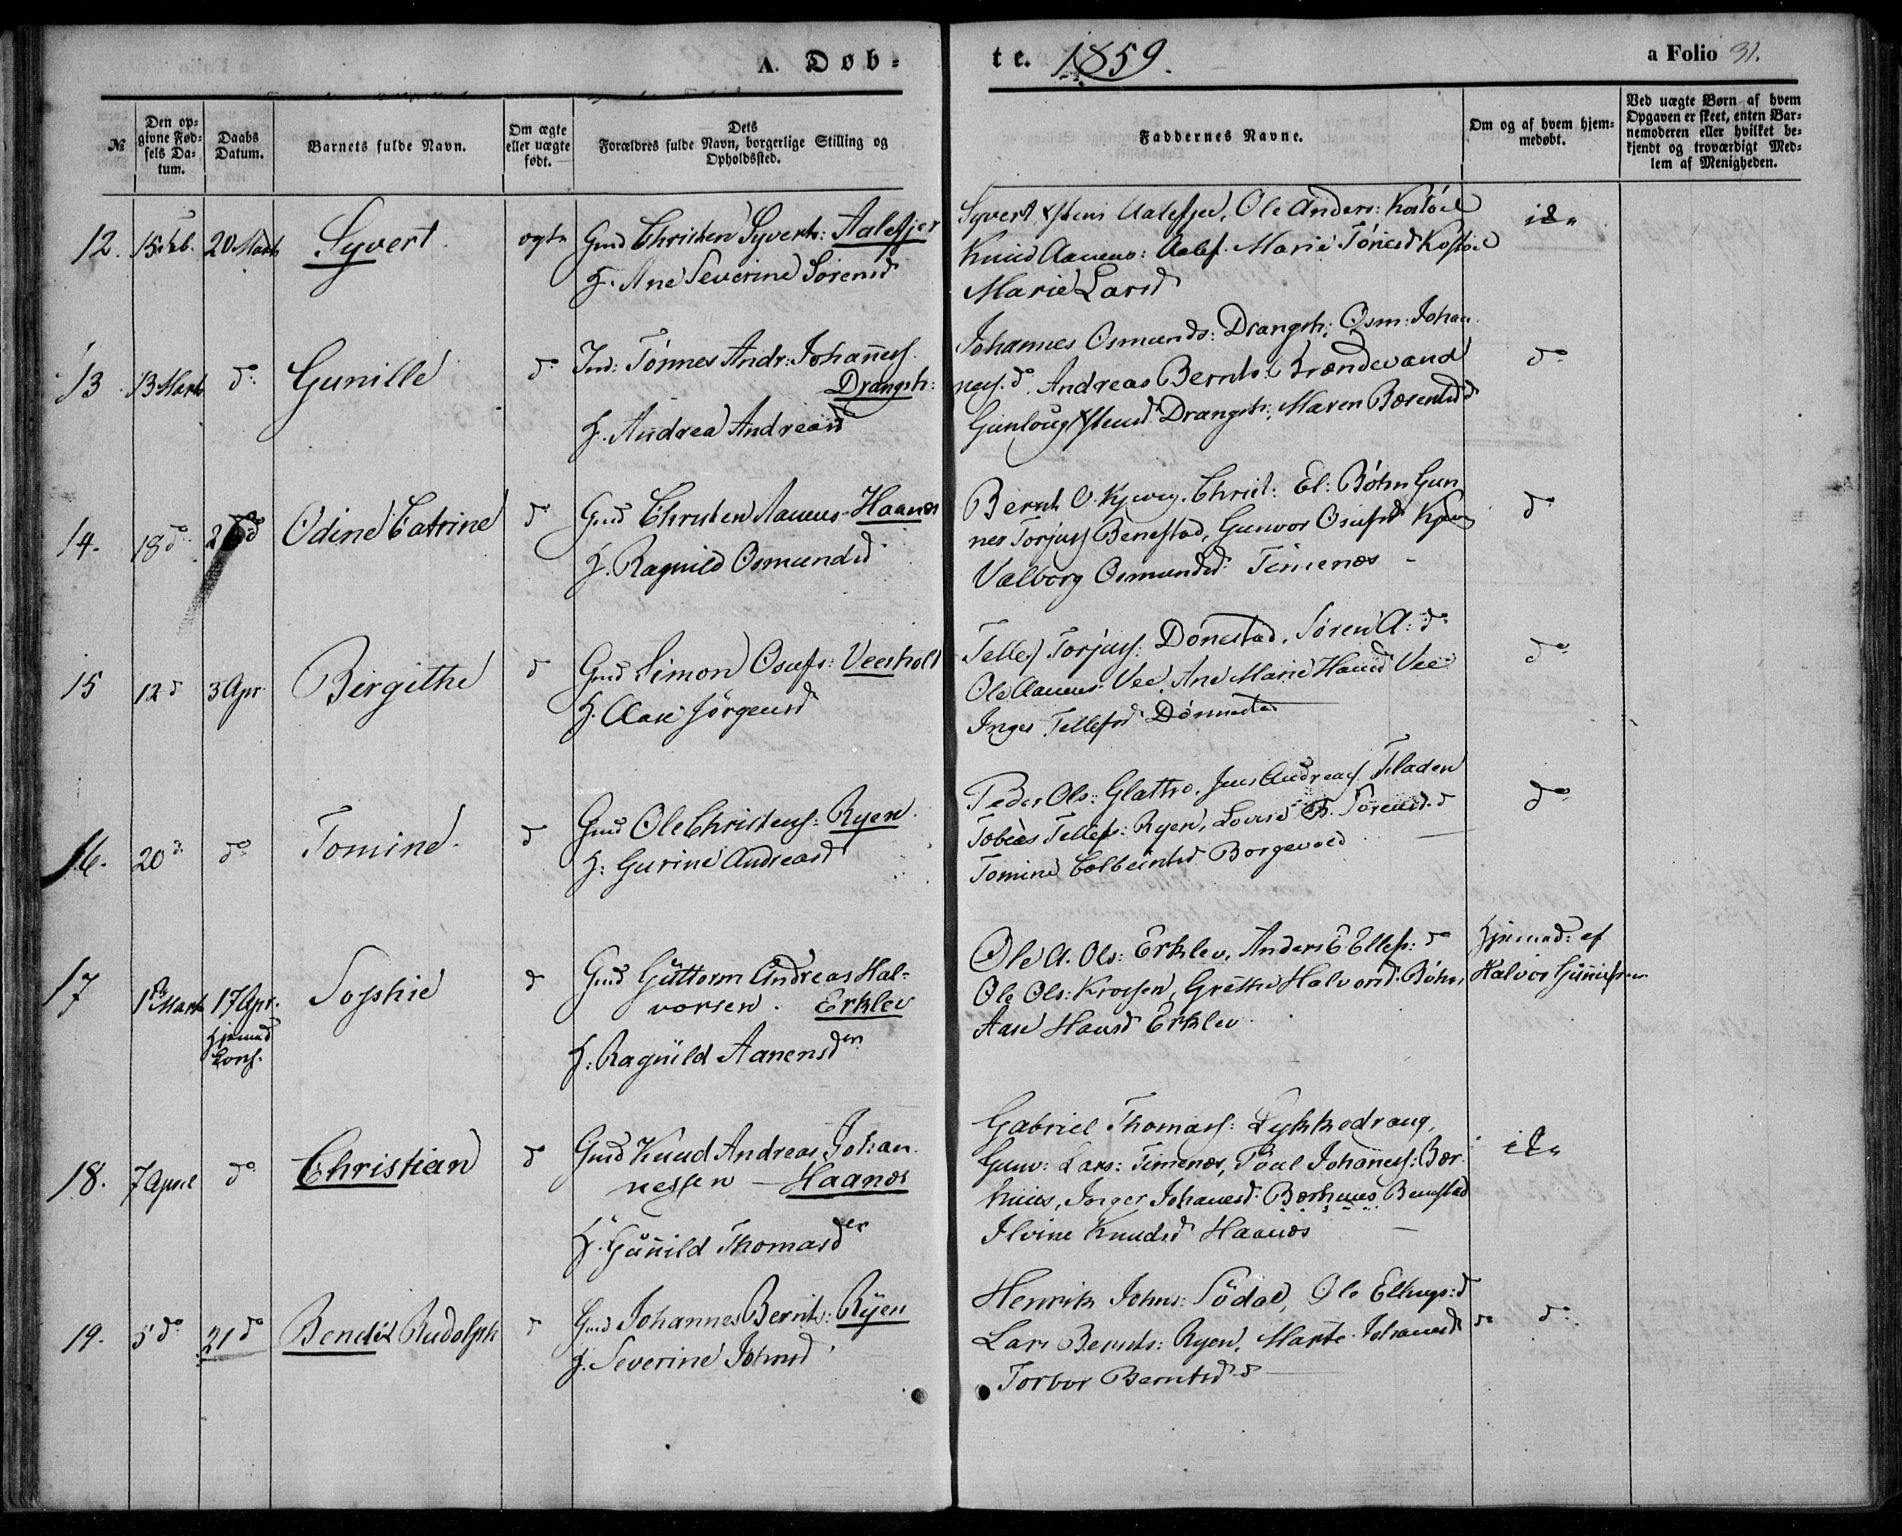 A. Døb-
te. 1859.
a Folio 31.
№
Den op-
givne Fød-
sels Da-
tum.
Daabs
Datum.
Barnets fulde Navn.
Om ægte
eller uægte
født.
Dets
Forældres fulde Navn, borgerlige Stilling og
Opholdssted.
Faddernes Navne.
Om og af hvem hjem-
medøbt.
Ved uægte Børn af hvem
Opgaven er skeet, enten Bar-
nemoderen eller hvilket be-
kjendt og troværdigt Med-
lem af Menigheden.
12. 15 Feb. 20 Marts Syvert ægte Gmd Christen Syverts: Aalefjer
H. Ane Severine Sørensd
Syvert Aalefjer, Ole Anders: Kostøel
Knud Aanens: Aalef. Marie Tønesd Kostøel
Marie Larsd
ikke
13 13 Marts do Gunille do Ind: Tønnes Andr: Johannesf.
Drangsh:
H. Andrea Andreasd
Johannes Osmunds: Drangsh: Osm: Johan
nesf. do, Andreas Bernts: Krændevand
Gunloug Drangsh: Maren Børentsd
do
14. 18 do Odine Catrine do Gmd Christen Aanens Haanes
H. Ragnild Osmundsd
Bernt O. Kjevig. Christ: El: Bøhn Gun
ner Torjusf Benestad, Gunvor Osufsd
Valborg Osmundsd Timenæs
do
15 12 d 3 Apr. Birgithe d Gmd Simon Osufs: Veesholt
H. Aase Jørgensd
Tellef Torjusf: Dønestad, Søren A: do
Ole Aanens Vee, Ane Marie Hansd Vee
Inger Tellefsd Dønnestad
do
16. 20 d. do Tomine d Gmd Ole Christens: Ryen
H: Gurine Andreasd
Peder Ols: Glattre. Jens Andreasf. Fladen
Tobias Tellefs: Ryen, Lovise Sørensd. d
Tomine Colbeintsd Borgevold
do
17 1st Marts 17 Apr. Sophie d Gmd Guttorm Andreas Hal-
hjemmed
vorsen. Erklev
H: Ragnild Aanensder
Ole A. Ols: Erklev, Anders E. Ellefs: d
Ole Ols: Krossen, Grethe Halvorsd. Bøhn
Aase Hansd Erklev.
Hjemmed: af
Halvor
18. 7 April do Christian d Gmd Knud Andreas Johan
nessen – Haanæs
H: Gunnild Thomasder
Gabriel Thomasf: Lykkedrang,
Gunv: Lars: Timenæs, Poul Johannesf: Bær
huus, Inger Johannesd: Bærhuus Benestad
Ilvine Knudsd Haanæs
ikke
19. 5 do 21 do Bendix Rudolph d Gmd Johannes Bernts: Ryen
H. Severine Johnsd
Henrik Johns: Sødal, Ole d
Lars Bernts: Ryen, Marte Johannesd do
Torbor Berntsd d
do